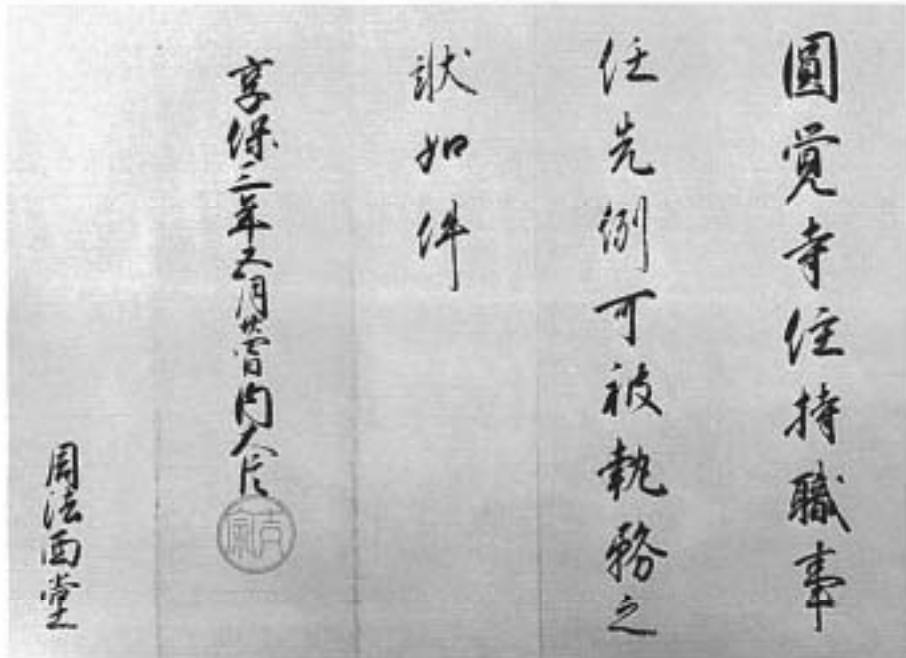 圓覚寺住持職事
任先例可被執務之
状如件
享保三年五月廿日内大臣
吉宗
周法西堂